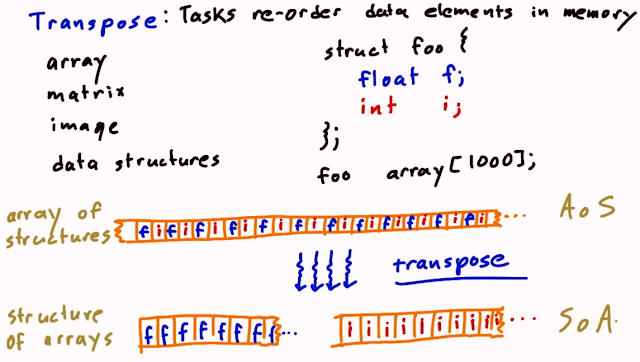 Transpose: Tasks re-order data elements in memory
array
matrix
image
data structures
struct foo {
float f;
int i;
};
foo array[1000];
array of
structures
f i f i f i f i f i f i f i f i f i f i f i ...
AoS
transpose
structure
of arrays
f f f f f f f f ...
i i i i i i i i i ...
SoA.